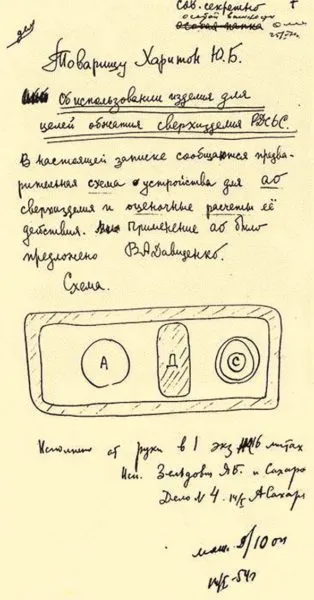 Сов. секретно
особой важности
Особая папка
Товарищу Харитон Ю.Б.
Об использовании изделия для
целей обжатия сверхизделия РДС-6С.
В настоящей записке сообщаются предва-
рительная схема устройства для ао
сверхизделия и оценочные расчеты её
действия. Применение ао было
предложено В.А.Давиденко.
Схема.
А Д С
Исполнено от руки в 1 экз на 6 листах
Исп. Зельдович Я.Б. и Сахаров
Дело № 4. 14/I АСахар
14/I-54г